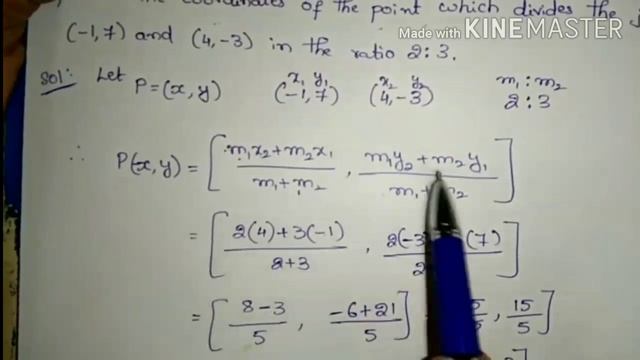 coordinates of the point which divides the
Made with KINEMASTER
(-1,7) and (4,-3) in the ratio 2:3.
Sol:- Let P=(x,y) x₁ y₁ (-1,7) x₂ y₂ (4,-3) m₁:m₂ 2:3
∴ P(x,y) = [ m₁x₂+m₂x₁ / m₁+m₂ , m₁y₂+m₂y₁ / m₁+m₂ ]
= [ 2(4)+3(-1) / 2+3 , 2(-3 (7) / 2 ]
= [ 8-3 / 5 , -6+21 / 5 ] 5 , 15/5 ]